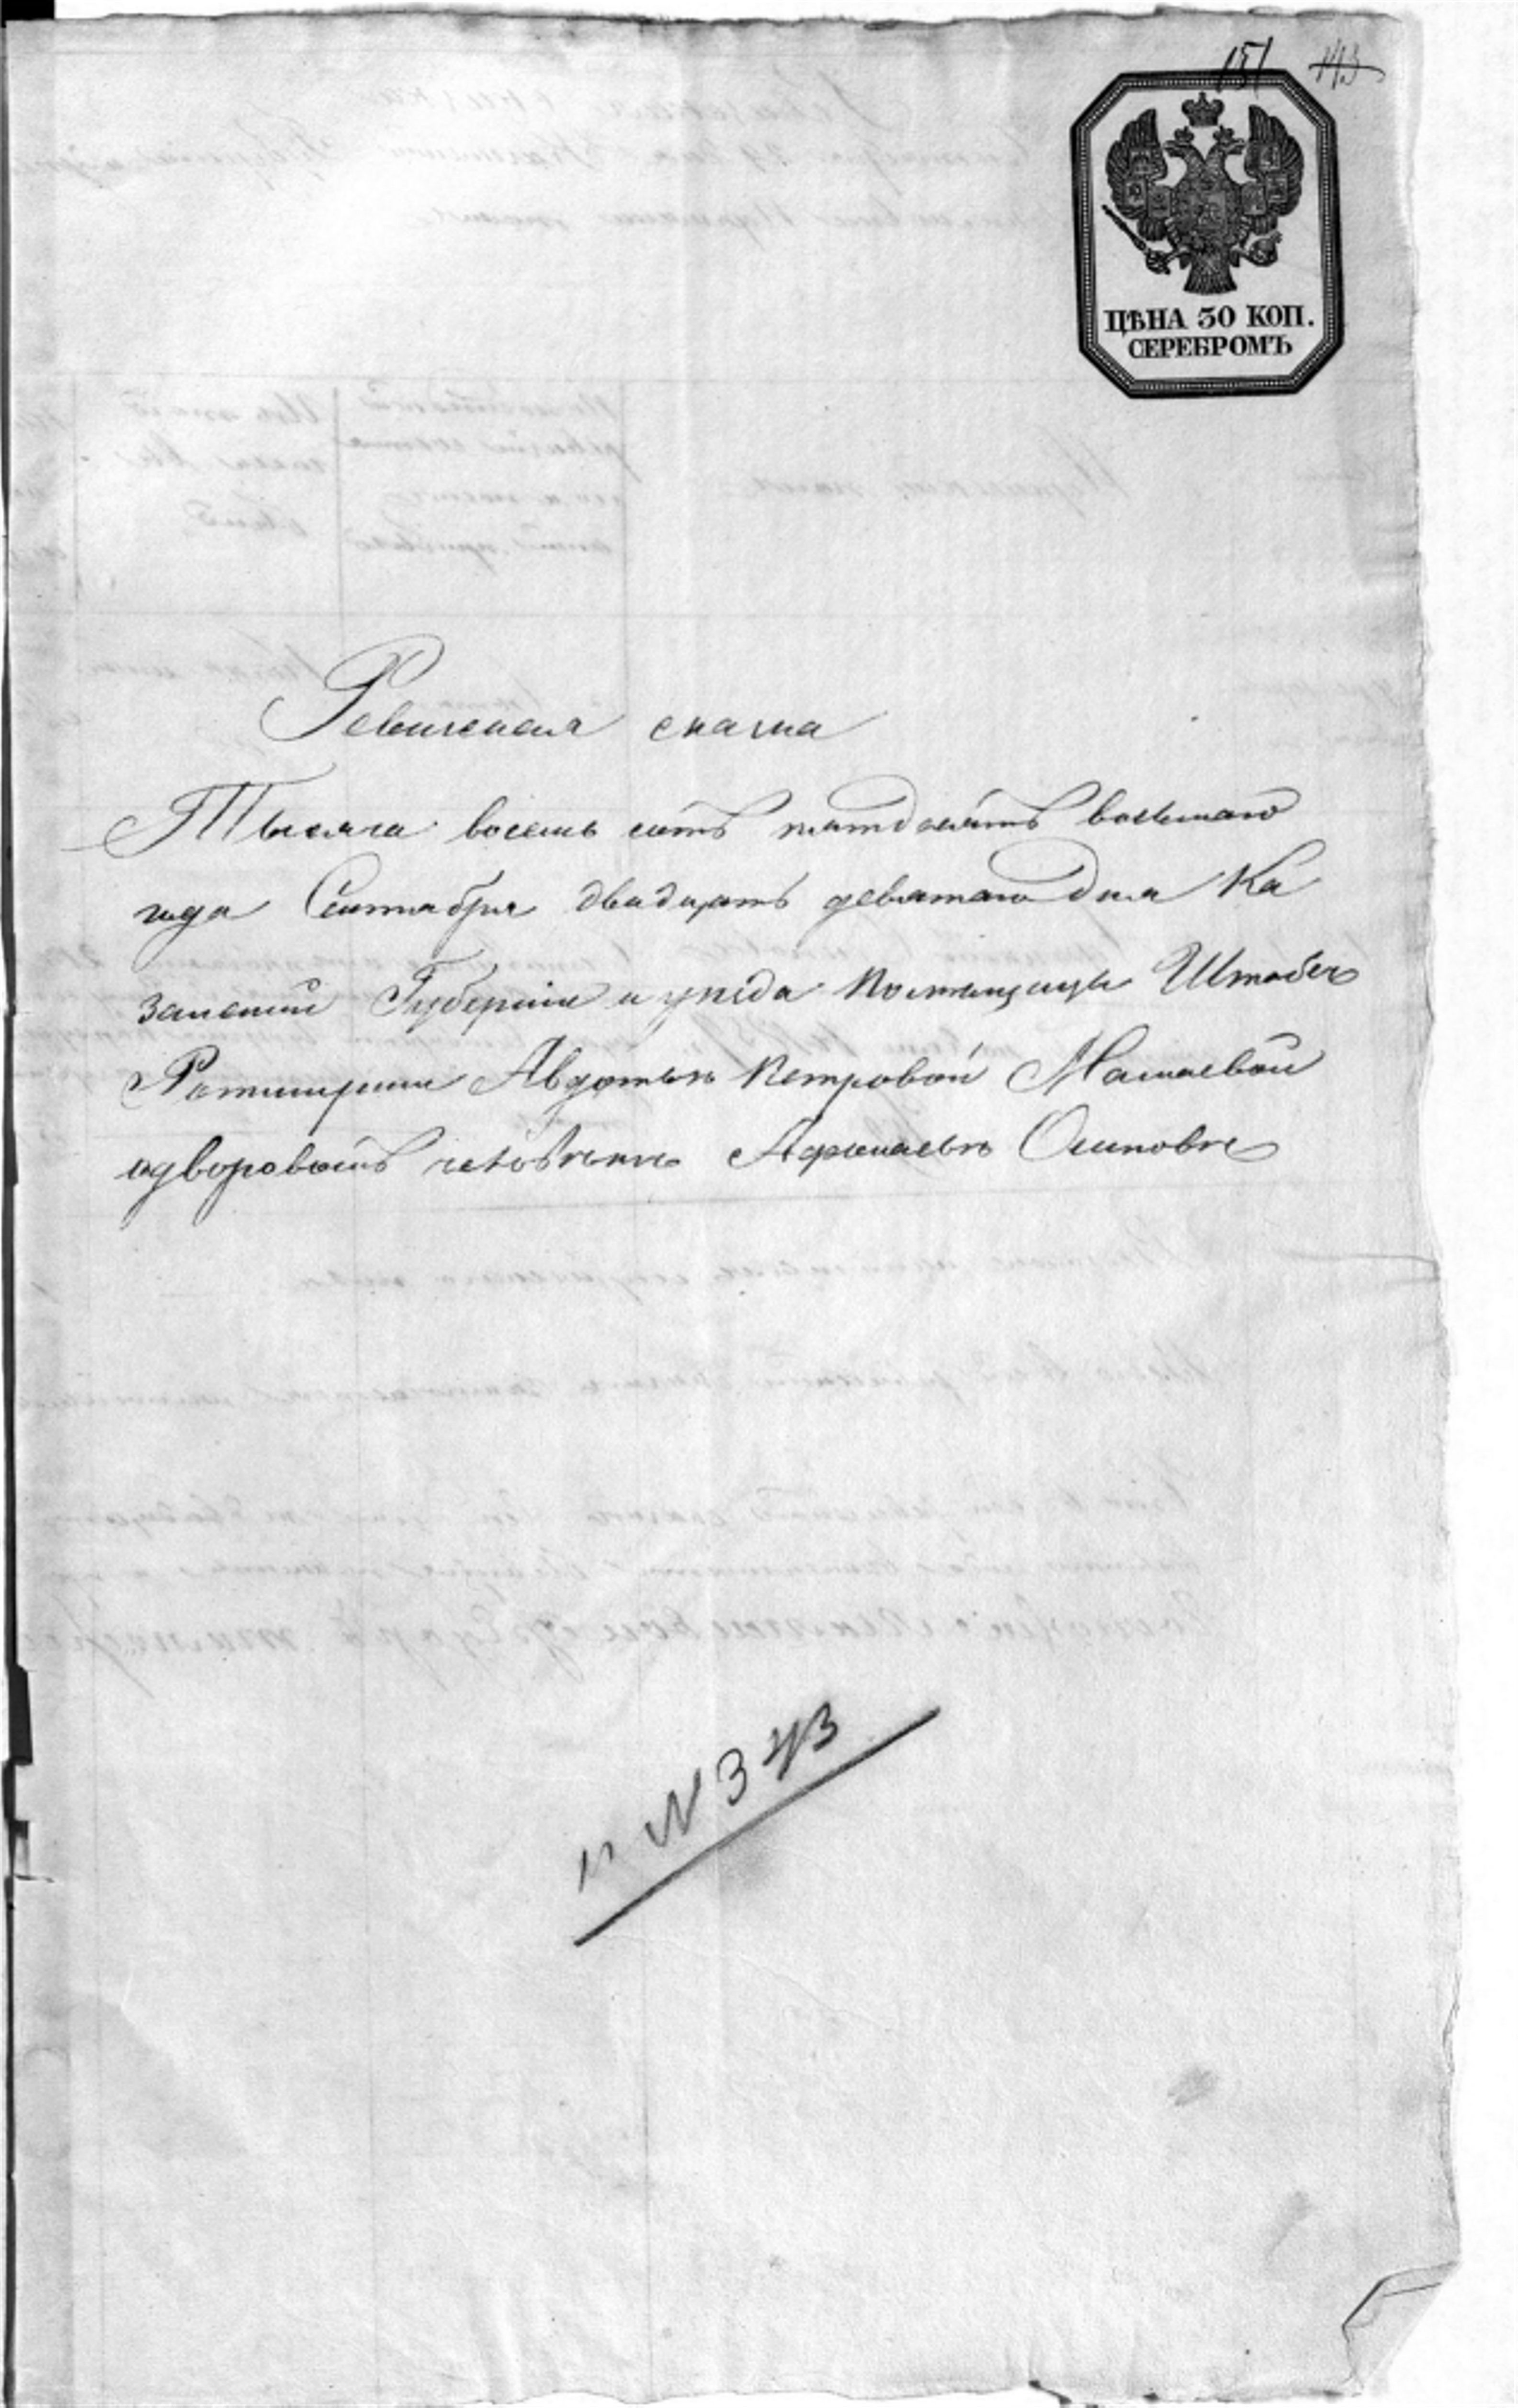 151 143
ЦѢНА 30 КОП.
СЕРЕБРОМЪ
Ревизская сказка
Тысяча восемь сотъ пятдесятъ восьмаго
года Сентября двадцать девятаго дня Ка
занской Губерніи и уѣзда помѣщицы Штабсъ
Ротмистрши Авдотьи Петровой Мамаевой
одворовомъ человѣкѣ Осиповѣ
№ 373